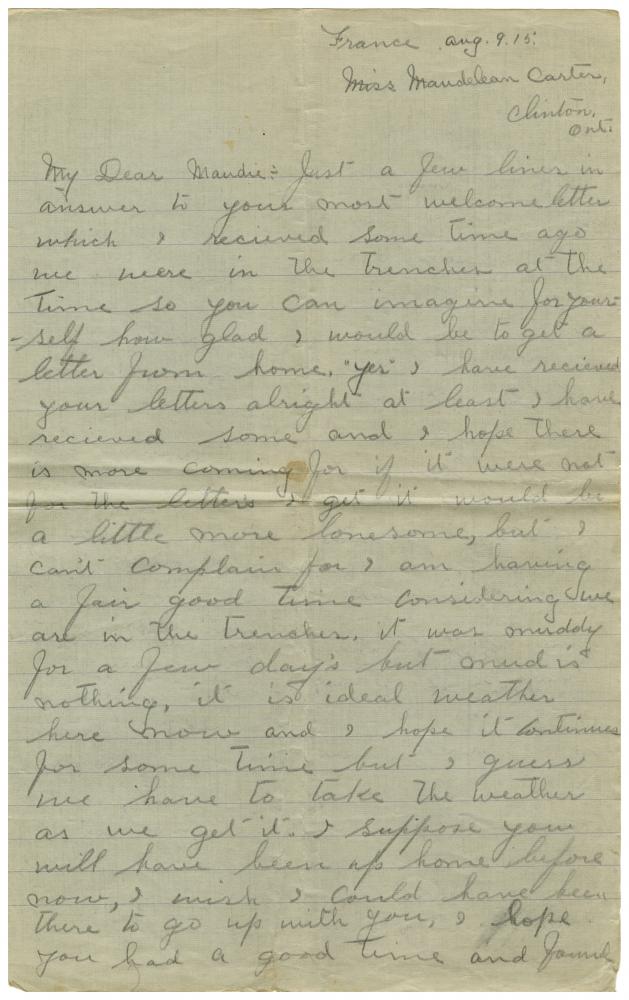 France aug. 9. 15.
Miss Maudelean Carter,
Clinton,
Ont.
My Dear Maudie:- Just a few lines in
answer to your most welcome letter
which I recieved some time ago
we were in the trenches at the
time so you can imagine for your-
-self how glad I would be to get a
letter from home. "yes" I have recieved
your letters alright at least I have
recieved some and I hope there
is more coming for if it were not
for the letters I get it would be
a little more lonesome, but I
can't complain for I am having
a fair good time considering we
are in the trenches. it was muddy
for a few day's but mud is
nothing, it is ideal weather
here now and I hope it continues
for some time but I guess
we have to take the weather
as we get it. I suppose you
will have been up home before
now, I wish I could have been
there to go up with you, I hope
you had a good time and found